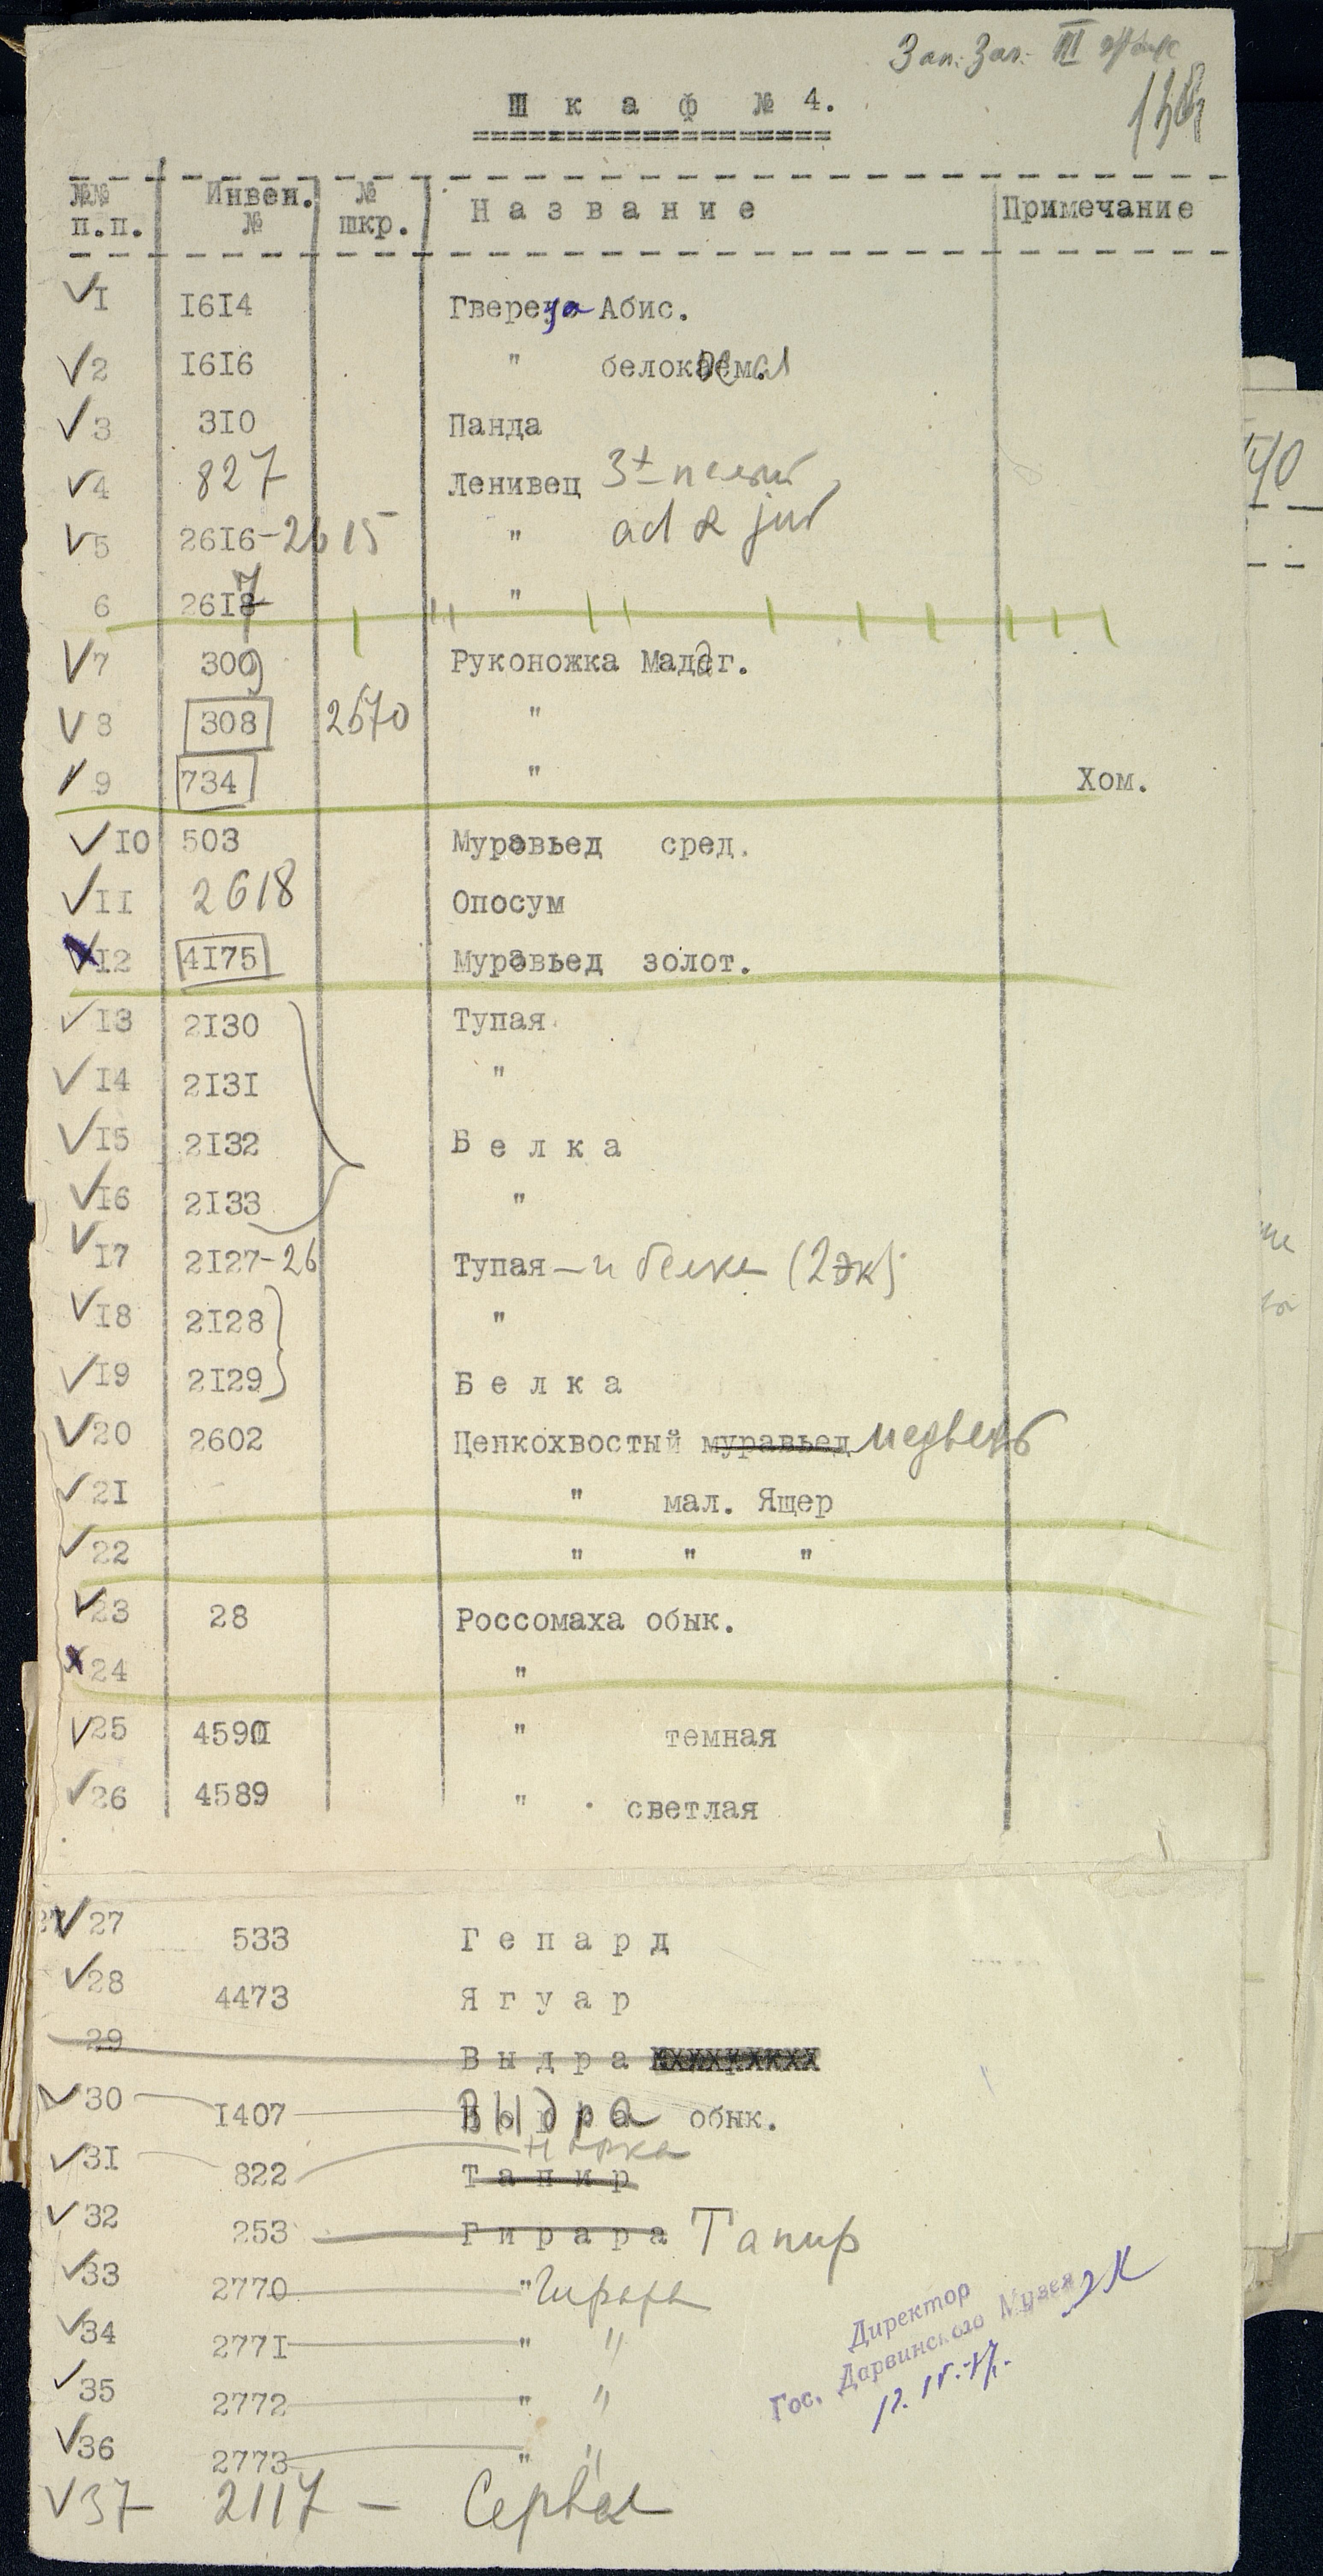 Зап. Зал. III этаж
Шкаф № 4.
№№ п.п. Инвен. № № шкр. Название Примечание
1 1614 Гвереца Абис.
2 1616 " белокаем.
3 310 Панда
4 827 Ленивец 3х палый
5 2616-2615 " ad & juv
6 2617 "
7 309 Руконожка Мадаг.
8 308 2570 "
9 734 " Хом.
10 503 Муравьед сред.
11 2618 Опосум
12 4175 Муравьед золот.
13 2130 Тупая
14 2131 "
15 2132 Белка
16 2133 "
17 2127-26 Тупая - и белка (2 эк)
18 2128 "
19 2129 Белка
20 2602 Ценкохвостый муравьед медведь
21 " мал. Ящер
22 " " "
23 28 Россомаха обык.
24 "
25 4590 " темная
26 4589 " светлая
27 533 Гепард
28 4473 Ягуар
29 Выдра
30 1407 Выдра обык.
норка
31 822 Тапир
32 253 Гирара Тапир
33 2770 " Гирара
34 2771 " "
35 2772 " "
36 2773 " "
37 2117 - Сервал
Директор
Гос. Дарвинского Музея